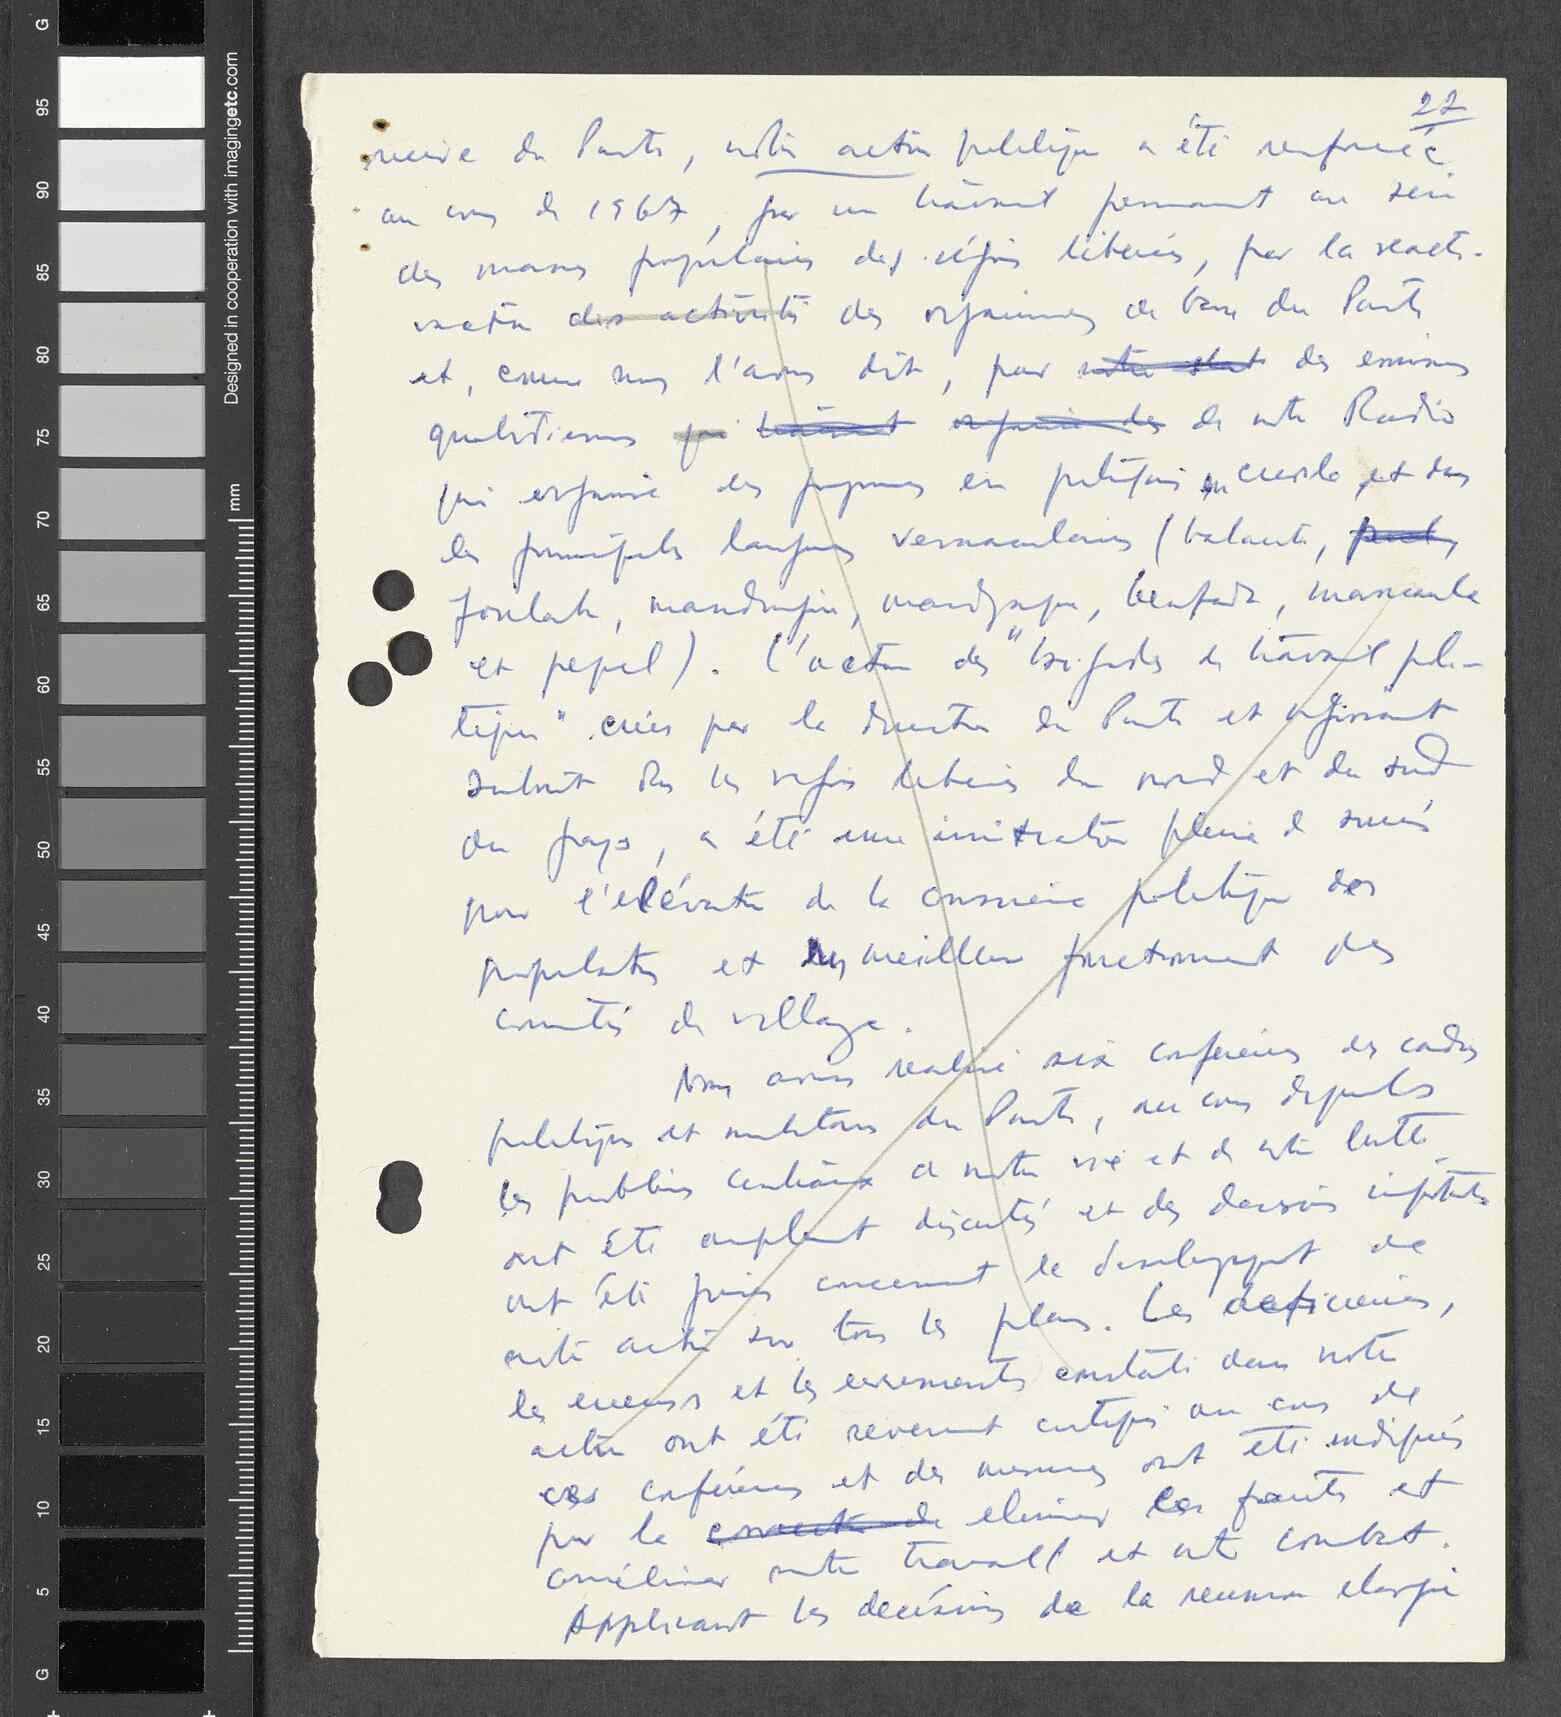 27
du Parti, notre action politique a été renforcée
au cours de 1967, par un travail permanent au sein
des masses populaires des régions libérées, par la réacti-
vation des activités des organismes de base du Parti
et, comme nous l'avons dit, par notre des émissions
quotidiennes qui travaint organise des de notre Radio
qui organise des programmes en portugais en creole et dans
les principales langues vernaculaires (balante, peul,
foulah, mandingue, mandjaque, beafada, mancanhe
et pepel). L'action des "brigades de travail poli-
tique" créés par la direction du Parti et agissant
surtout dans les régions libérées du nord et du sud
du pays, a été une initiative pleine de succès
pour l'élévation de la conscience politique des
populations et meilleur fonctionnement des
comités de village.
Nous avons réalisé six conférences des cadres
politiques et militaires du Parti, au cours desquelles
les problèmes centraux de notre vie et de notre lutte
ont été amplement discutés et des decisions importantes
ont été prises concernant le developpement de
notre action sur tous les plans. Les deficiences,
les erreurs et les errements constatés dans notre
action ont été sévèrement critiqués au cours de
ces conférences et des mesures ont été indiquées
pour la correction de eliminer les fautes et
améliorer notre travail et notre combat.
Appliquant les decisions de la reunion elargie
Designed in cooperation with imagingetc.com
mm
G
95
90
85
80
75
70
65
60
55
50
45
40
35
30
25
20
15
10
5
G